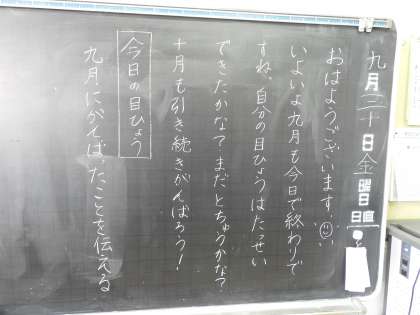 九月三十日金曜日
日直
おはようございます。
いよいよ九月も今日で終わりで
すね。自分の目ひょうはたっせい
できたかな？まだとちゅうかな？
十月も引き続きがんばろう！
今日の目ひょう
九月にがんばったことを伝える